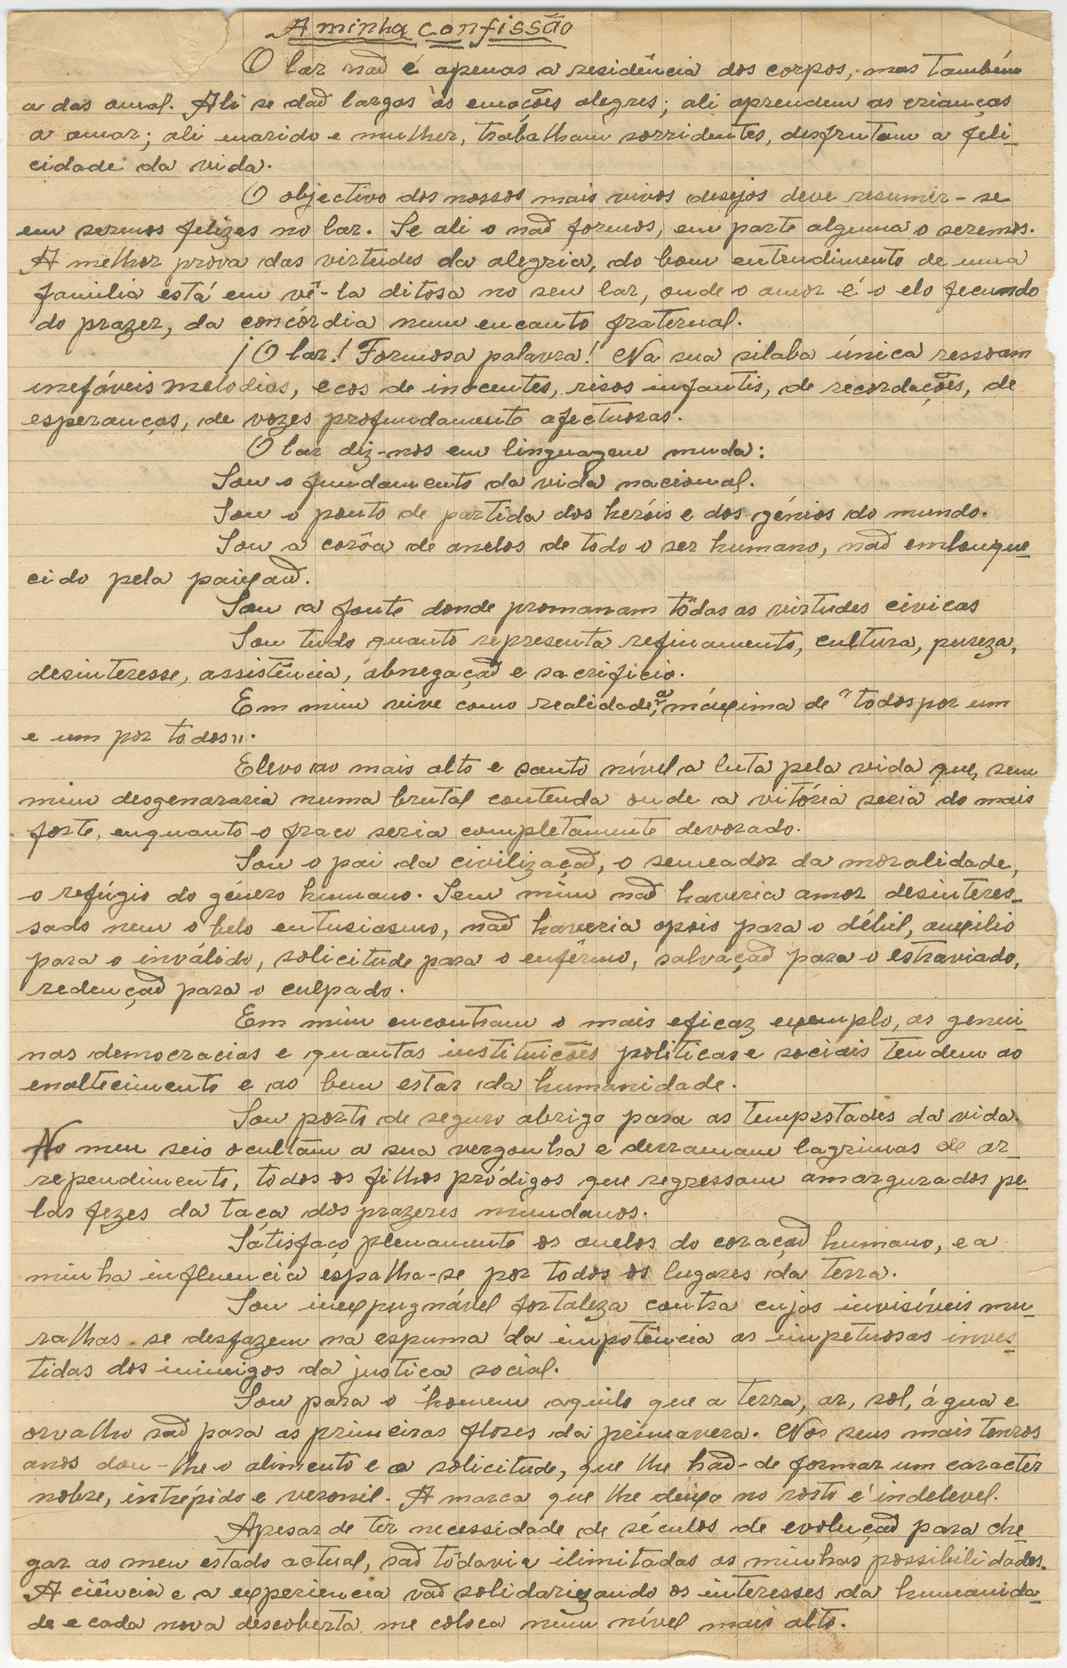 A minha confissão
O lar não é apenas a residência dos corpos, mas também
a das almas. Ali se dão largas às emoções alegres; ali aprendem as crianças
a amar; ali marido e mulher, trabalham sorridentes, desfrutam a feli-
cidade da vida.
O objectivo dos nossos mais vivos desejos deve resumir-se
em sermos felizes no lar. Se ali o não formos, em parte alguma o seremos.
A melhor prova das virtudes da alegria, do bom entendimento de uma
familia está em vê-la ditosa no seu lar, onde o amor é o elo fecundo
do prazer, da concórdia num encanto fraternal.
¡O lar! Formosa palavra! Na sua silaba única ressoam
inefáveis melodias, ecos de inocentes, risos infantis, de recordações, de
esperanças, de vozes profundamente afectuosas.
O lar diz-nos em linguagem muda:
Sou o fundamento da vida nacional.
Sou o ponto de partida dos heróis e dos génios do mundo.
Sou a corôa de anelos de todo o ser humano, não enlouque-
cido pela paixão.
Sou a fonte donde promanam tôdas as virtudes civicas
Sou tudo quanto representa refinamento, cultura, pureza,
desinteresse, assistência, abnegação e sacrificio.
Em mim vive como realidade, a máxima de "todos por um
e um por todos".
Elevo ao mais alto e santo nível a luta pela vida que, sem
mim desgenararia numa brutal contenda onde a vitória seria do mais
forte, enquanto o fraco seria completamente devorado.
Sou o pai da civilização, o semeador da moralidade,
o refúgio do género humano. Sem mim não haveria amor desinteres-
sado nem o belo entusiasmo, não haveria apoio para o débil, auxilio
para o inválido, solicitude para o enfêrmo, salvação para o estraviado,
redenção para o culpado.
Em mim encontram o mais eficaz exemplo, as genui-
nas democracias e quantas instituições politicas e sociais tendem ao
enaltecimento e ao bem estar da humanidade.
Sou porto de seguro abrigo para as tempestades da vida.
No meu seio ocultam a sua vergonha e derramam lagrimas de ar-
rependimento, todos os filhos pródigos que regressam amargurados pe-
las fezes da taça dos prazeres mundanos.
Satisfaço plenamente os anelos do coração humano, e a
minha influencia espalha-se por todos os lugares da terra.
Sou inexpugnável fortaleza contra cujas invisíveis mu-
ralhas se desfazem na espuma da impotência as impetuosas inves-
tidas dos inimigos da justiça social.
Sou para o homem aquilo que a terra, ar, sol, água e
orvalho são para as primeiras flores da primavera. Nos seus mais tenros
anos dou-lhe o alimento e a solicitude, que lhe hão-de formar um caracter
nobre, intrépido e veronil. A marca que lhe deixo no rosto é indelevel.
Apesar de têr necessidade de séculos de evolução para che-
gar ao meu estado actual, são todavia ilimitadas as minhas possibilidades.
A ciência e a experiencia vão solidarizando os interesses da humanida-
de e cada nova descoberta me coloca num nível mais alto.